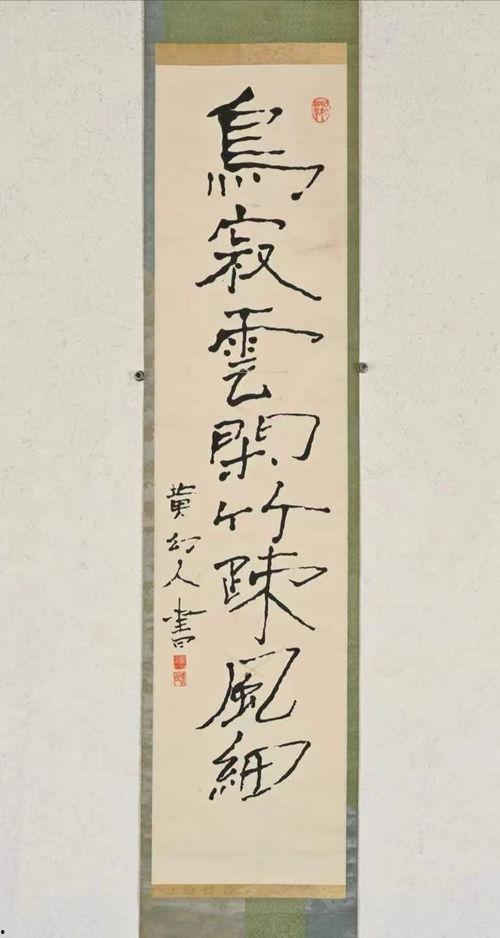 鳥寂雲閑竹疎風細
黄幻人書